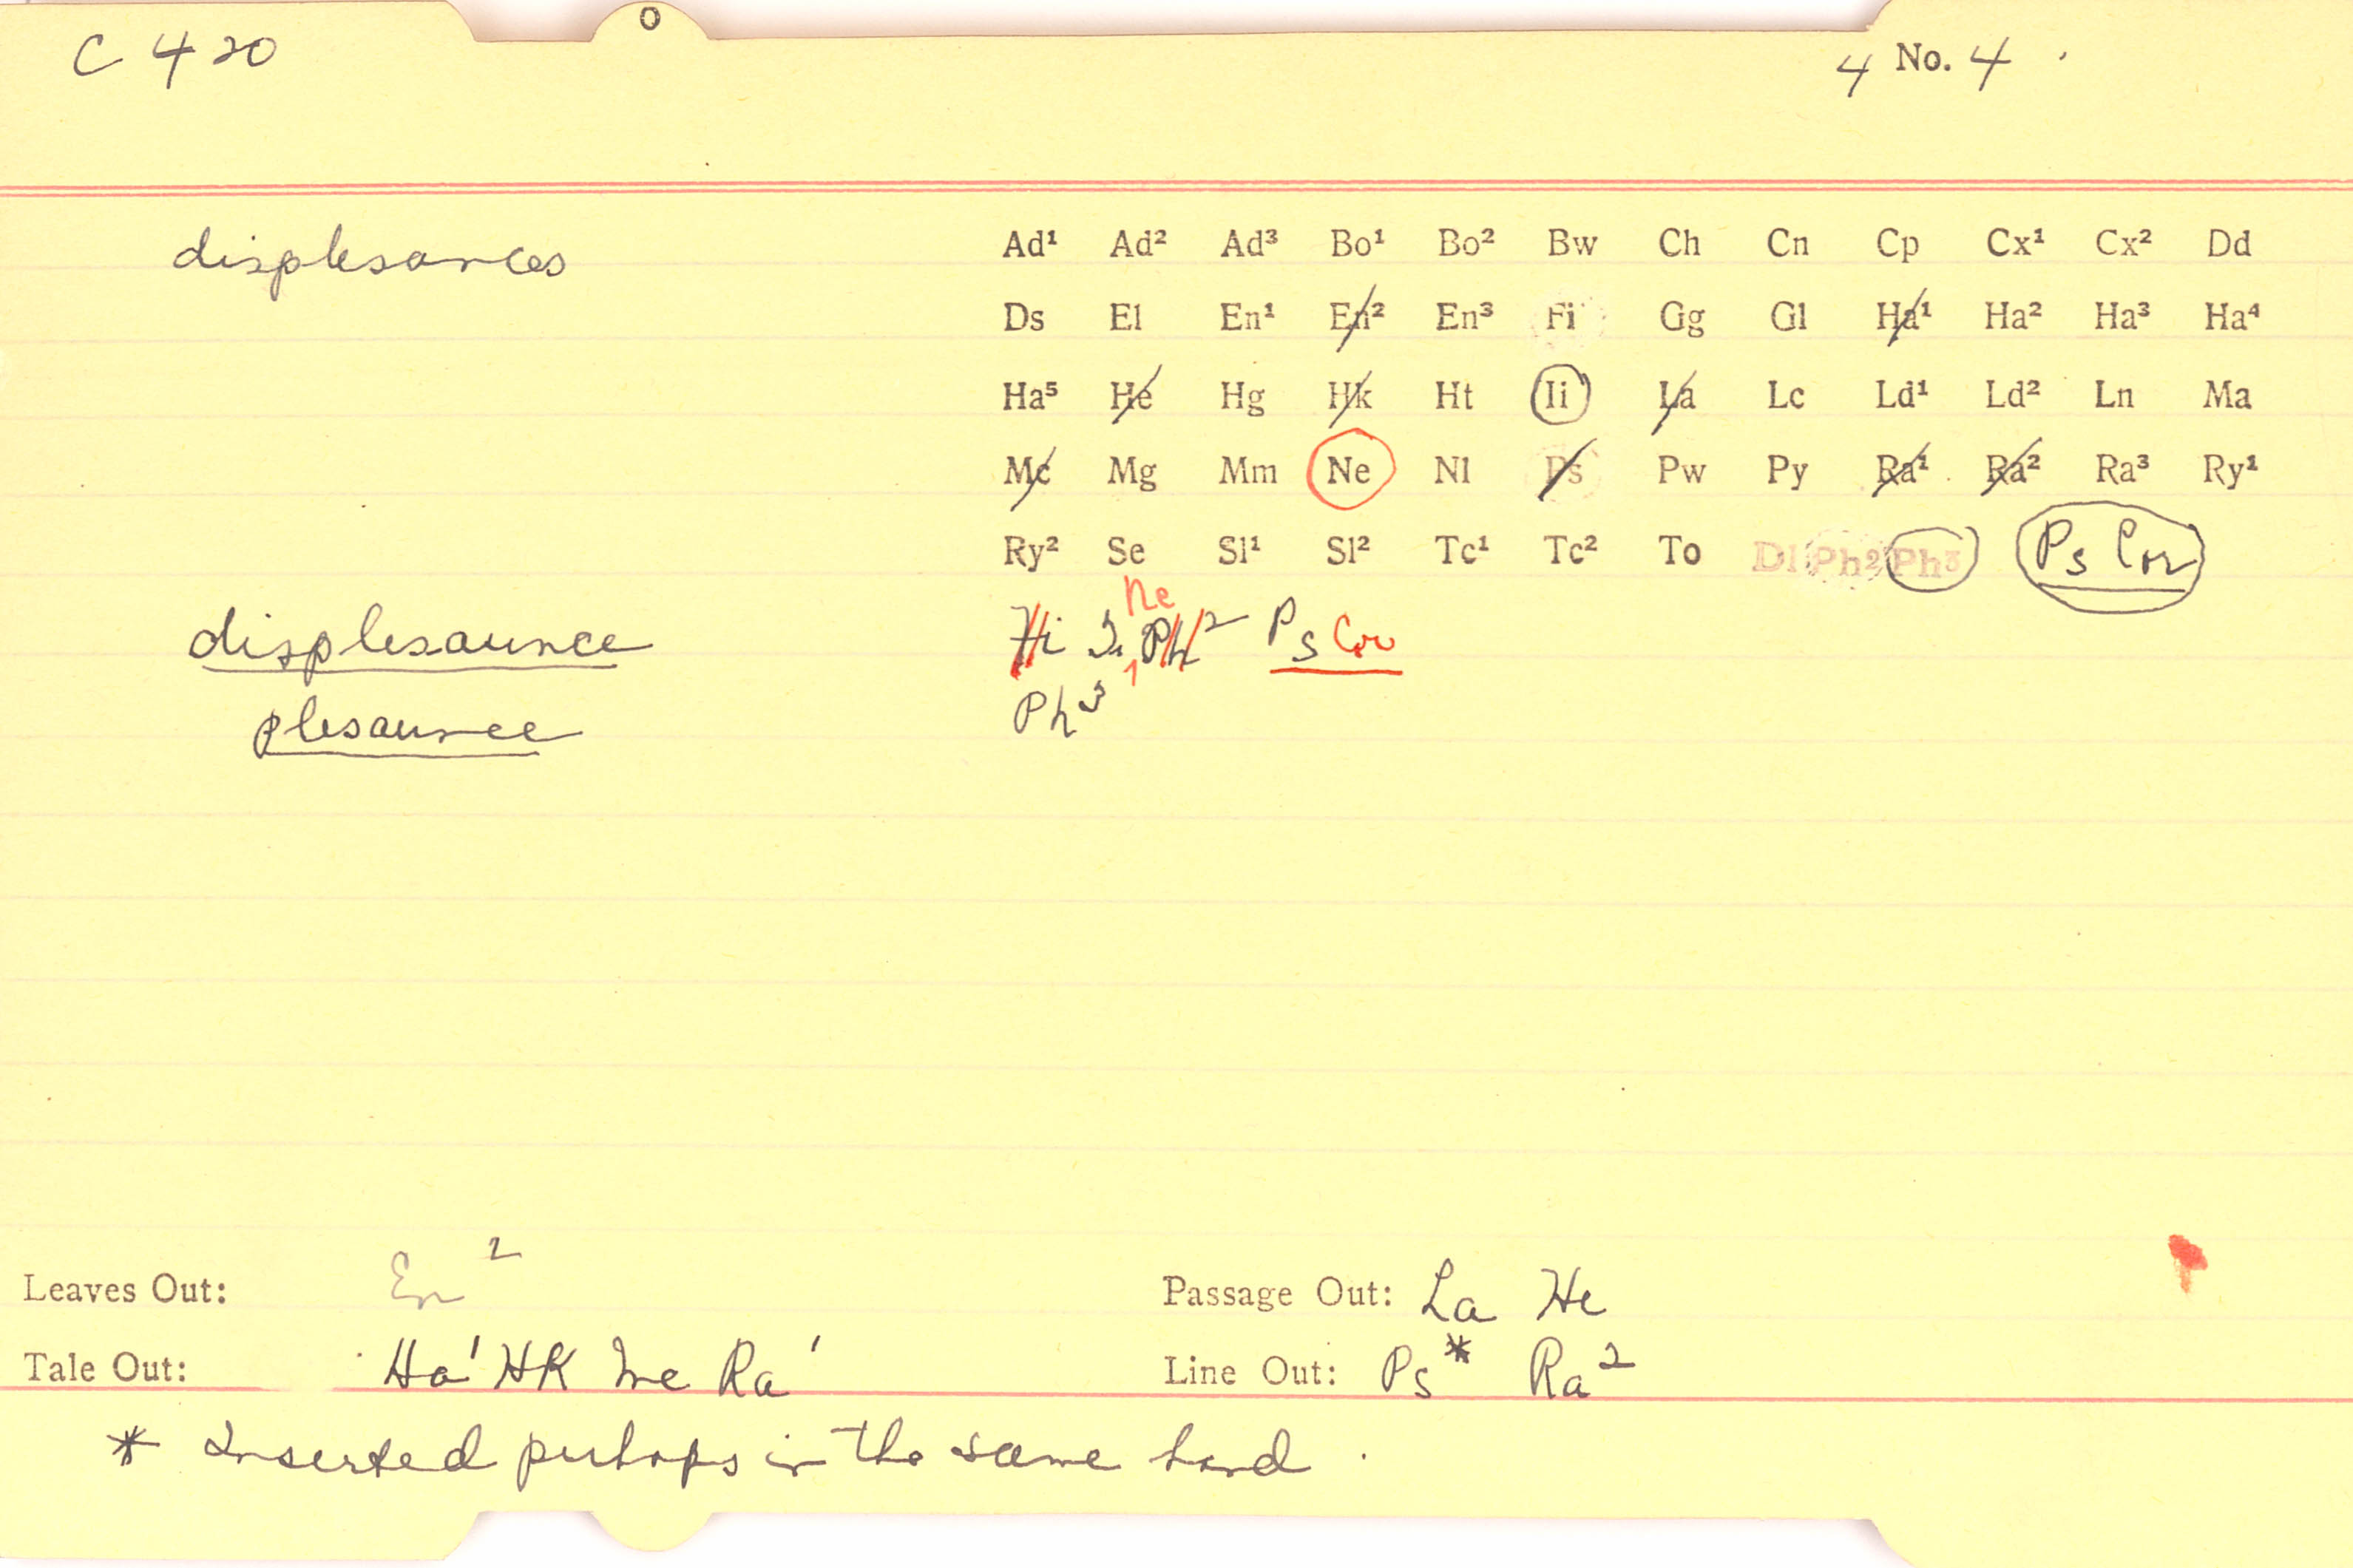 O
C 420
4 No. 4
displesances
Ad¹ Ad² Ad³ Bo¹ Bo² Bw Ch Cn Cp Cx¹ Cx² Dd
Ds El En¹ En² En³ Fi Gg Gl Ha¹ Ha² Ha³ Ha⁴
Ha⁵ He Hg Hk Ht Ii La Lc Ld¹ Ld² Ln Ma
Mc Mg Mm Ne Nl Ps Pw Py Ra¹ Ra² Ra³ Ry¹
Ry² Se Sl¹ Sl² Tc¹ Tc² To Dl Ph² Ph³ Ps Cor
Ne
displesaunce Ii Ph² Ps Cor
plesaunce Ph³
Leaves Out: En² Passage Out: La He
Tale Out: Ha¹ HK Mc Ra¹ Line Out: Ps* Ra²
* Inserted perhaps in the same hand.